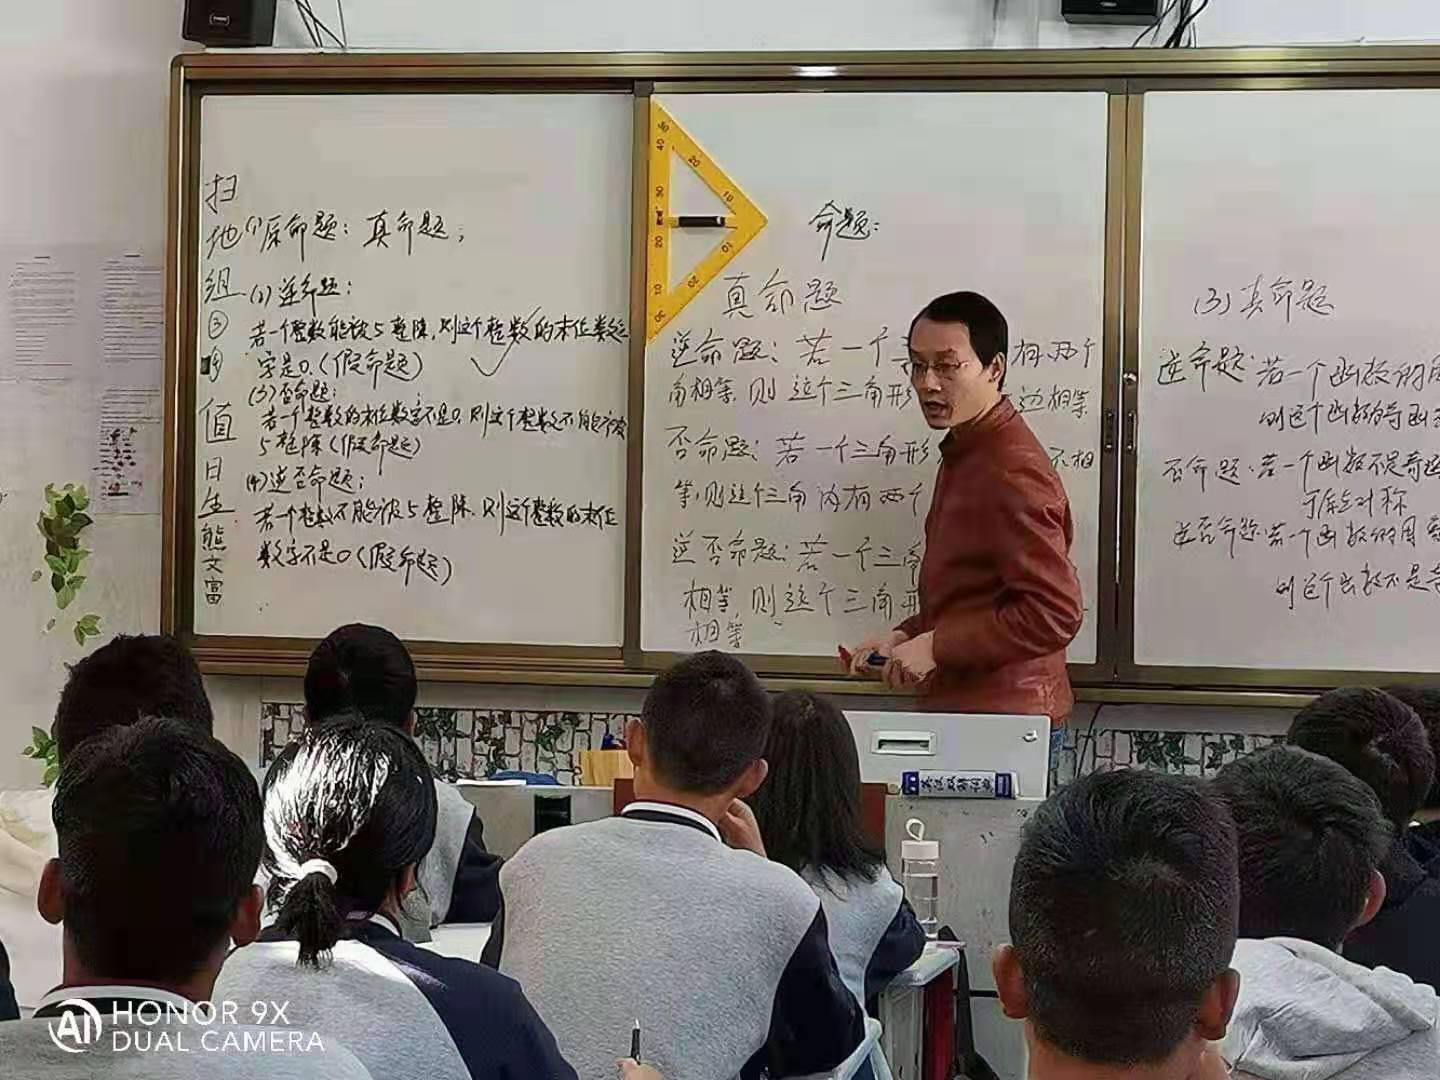 扫
地
组
③
的
值
日
生
熊
文
富
(1)原命题：真命题；
(2)逆命题：
若一个整数能被5整除，则这个整数的末位数
字是0.(假命题)
(3)否命题：
若一个整数的末位数字不是0，则这个整数不能被
5整除(假命题)
(4)逆否命题：
若一个整数不能被5整除，则这个整数的末位
数字不是0(假命题)
命题：
真命题
逆命题：若一个三 有两个
角相等，则这个三角形 边相等
否命题：若一个三角形 不相
等，则这个三角 内有两个
逆否命题：若一个三角
相等，则这个三角形
相等
(3)真命题
逆命题：若一个函数的
则这个函数
否命题：若一个函数不是奇函
对称
逆否命题：若一个函数的图
则这个函数不是
HONOR 9X
DUAL CAMERA